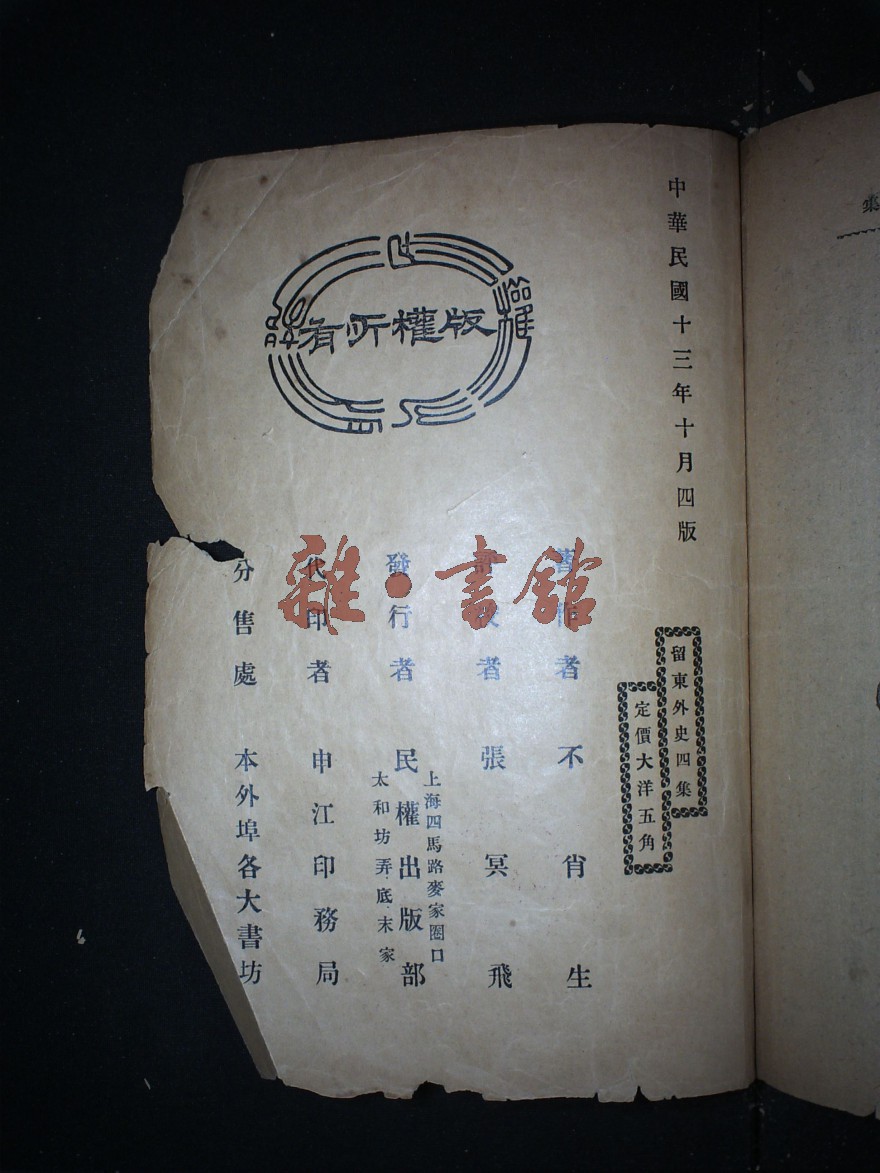 中華民國十三年十月四版
留東外史四集
定價大洋五角
著作者 不肖生
者 張冥飛
發行者 民權出版部
上海四馬路麥家圈口
太和坊弄底末家
代印者 申江印務局
分售處 本外埠各大書坊
版權所有
雜·書館
集